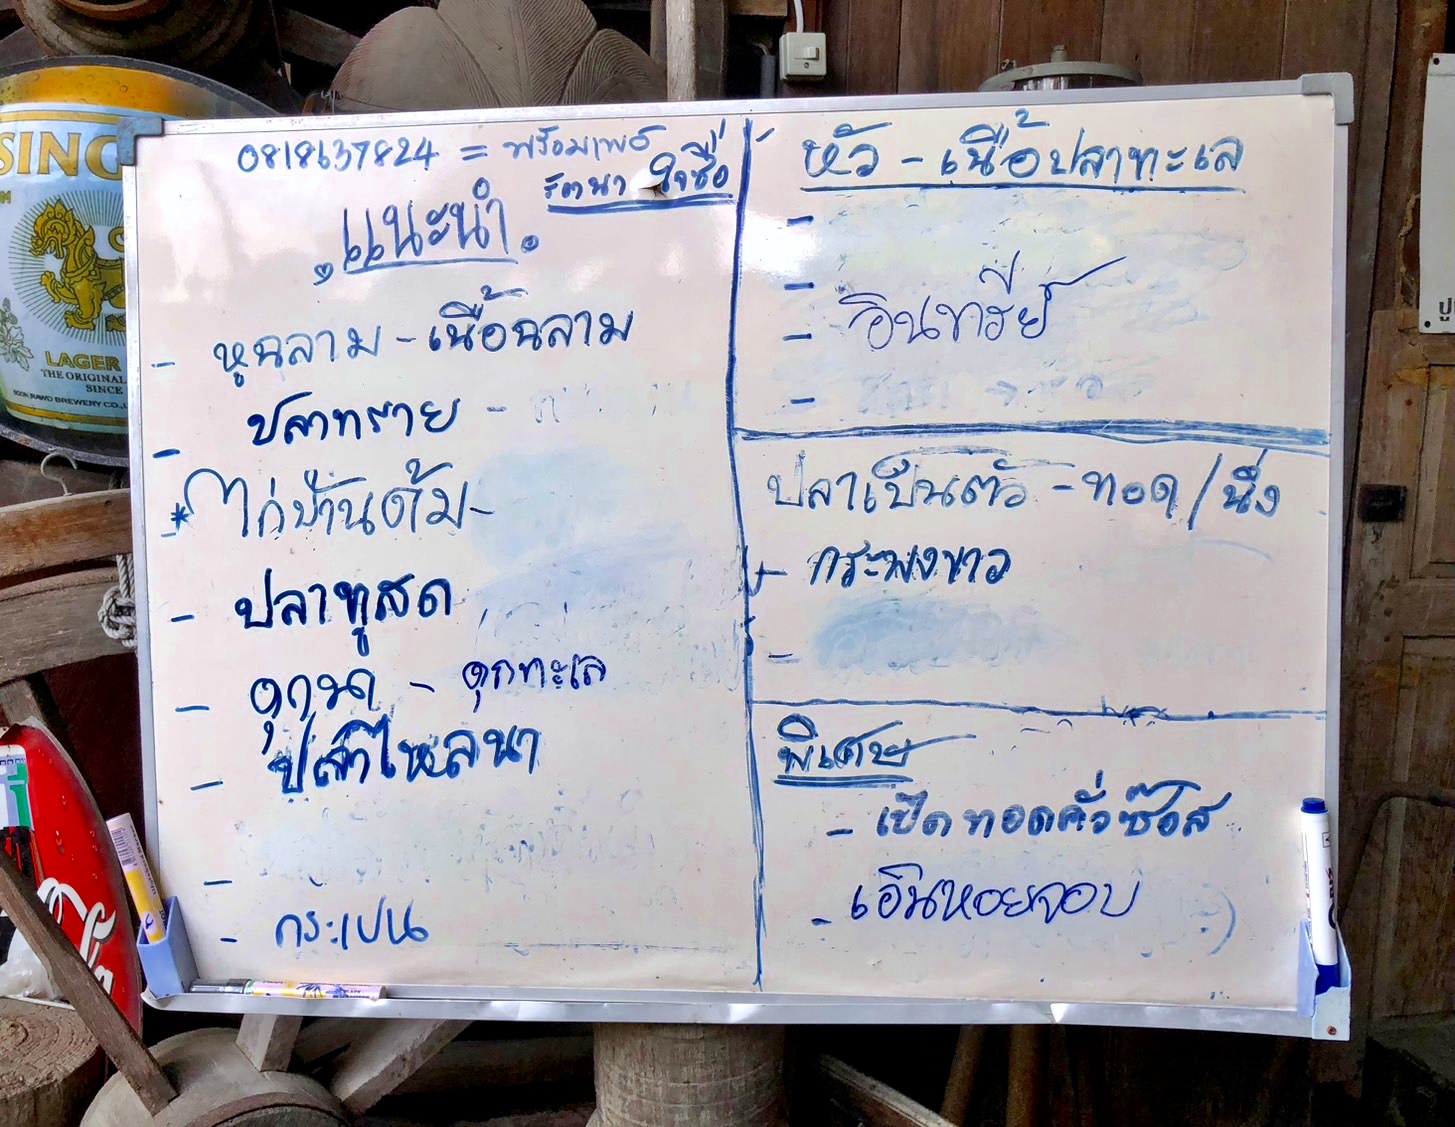 0818637824 = พร้อมเพย์
รัตนา ใจซื่อ
แนะนำ
- หูฉลาม - เนื้อฉลาม
- ปลาทราย -
* ไก่บ้านต้ม -
- ปลาทูสด
- ดุกนา - ดุกทะเล
- ปลาไหลนา
-
- กระเบน
หัว - เนื้อปลาทะเล
-
- อินทรีย์
-
-
ปลาเป็นตัว - ทอด / นึ่ง
- กระพงขาว
-
พิเศษ
- เป็ดทอดคั่วซ๊อส
- เอ็นหอยจอบ
SING
LAGER
THE ORIGINAL
SINCE
BOON RAWD BREWERY CO.,